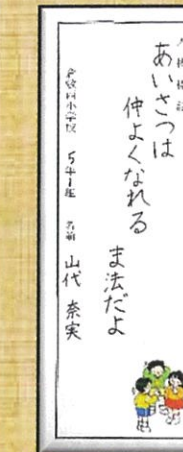 あいさつは
仲よくなれる
ま法だよ
小学校 5年1組 名前 山代 奈実